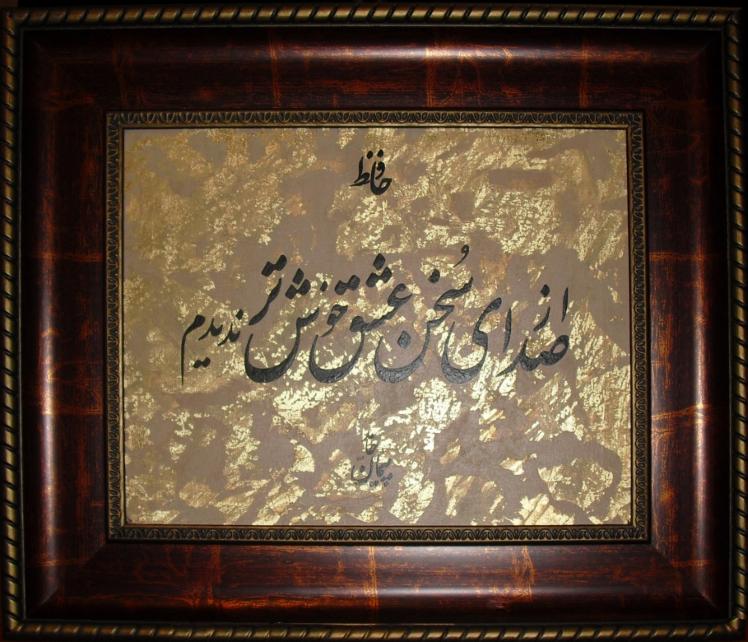 حافظ
از صدای سُخن عشق خوش تر ندیدم
پیمان